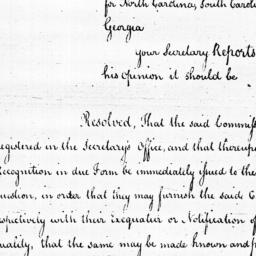 for North Carolina, South Caroli
Georgia
your Secretary Reports
his opinion it should be
Resolved, That the said Commiss
egistered in the Secretary's Office, and that thereup
Recognition in due Form be immediately issued to the
uestion, in order that they may furnish the said C
espectively with their exequatur or Notification of
uality, that the same may be made known and p